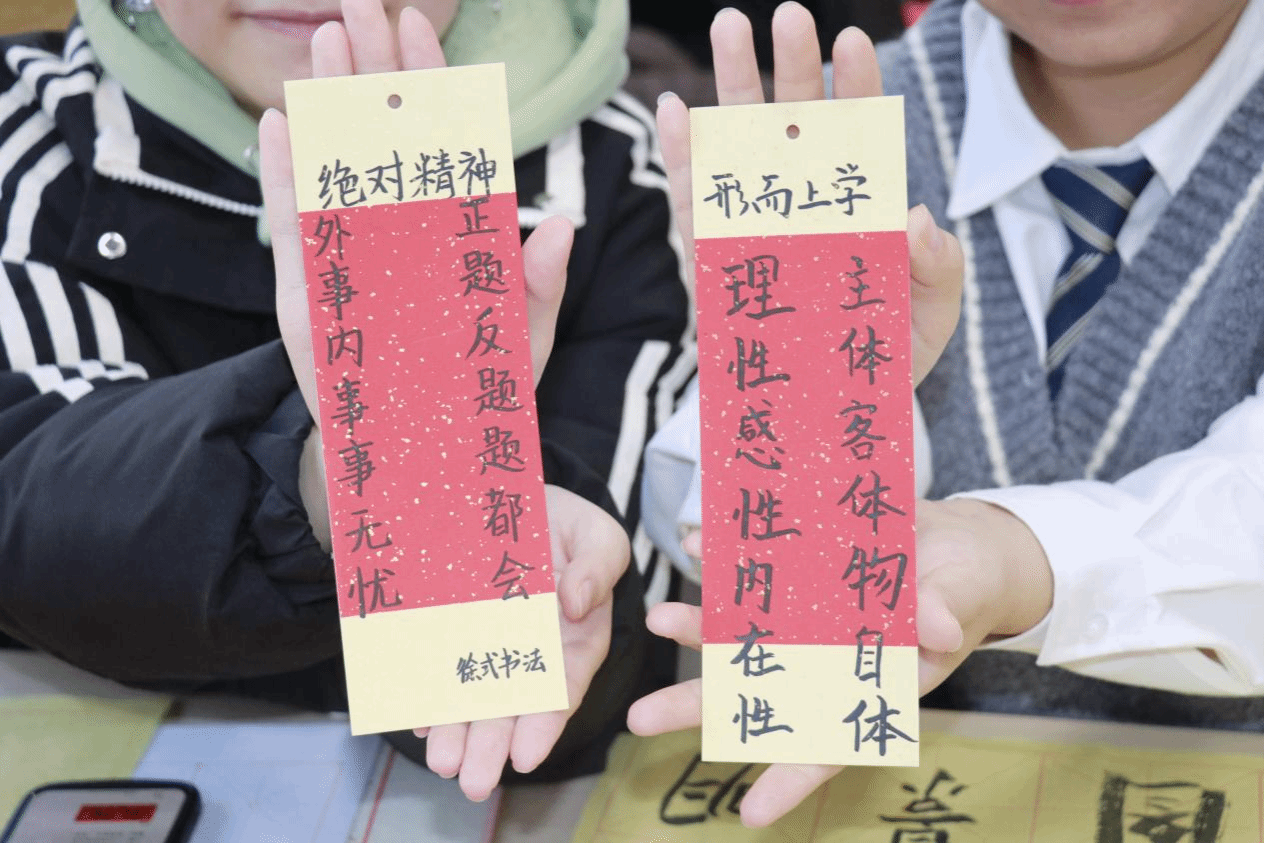 绝对精神
正题反题题都会
外事内事事无忧
徐式书法
形而上学
主体客体物自体
理性感性内在性